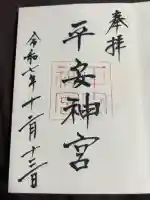 奉拝
平安神宮
令和七年十二月十三日